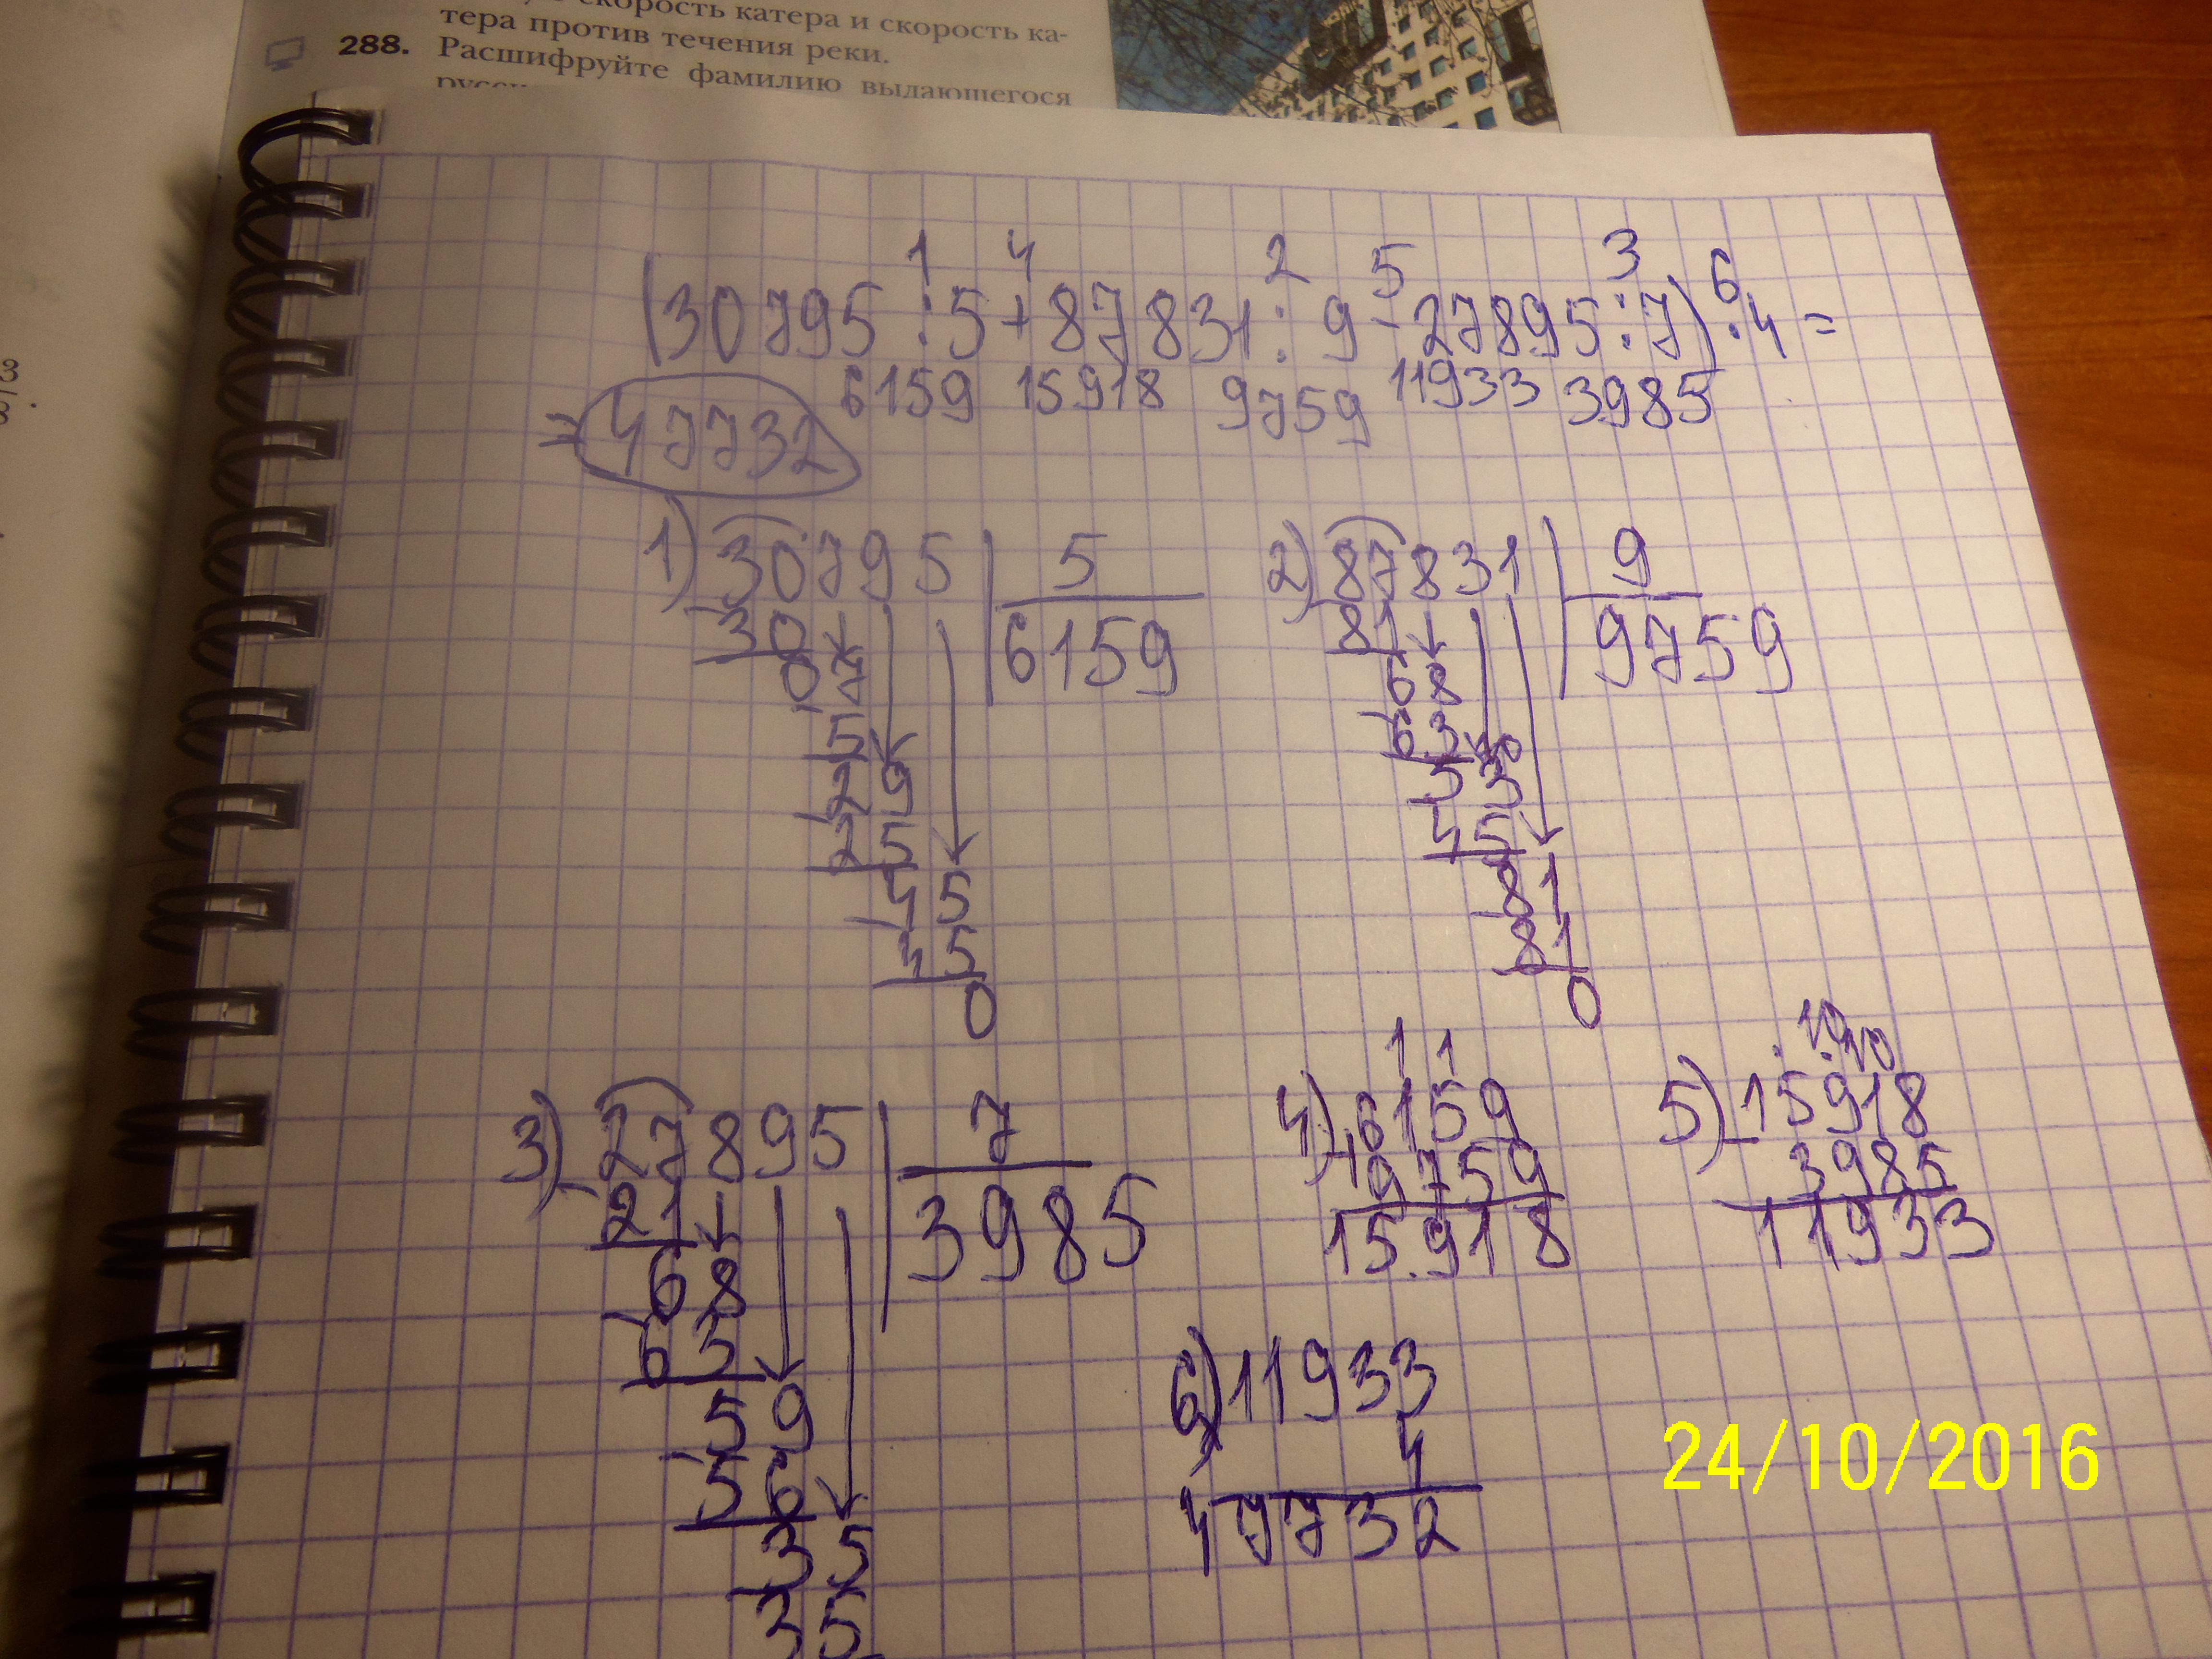 скорость катера и скорость ка-
тера против течения реки.
288. Расшифруйте фамилию выдающегося
1 4 2 5 3 6
(30795 : 5 + 87831 : 9 - 27895 : 7) · 4 =
6159 15918 9759 11933 3985
= 47732
1) 30795 5
30 6159
07
5
29
25
45
45
0
2) 87831 9
81 9759
68
63
53
45
81
81
0
3) 27895 7
21 3985
68
63
59
56
35
35
1 1
4) 6159
+ 9759
15918
10 10
5) 15918
- 3985
11933
6) 11933
× 4
47732
24/10/2016